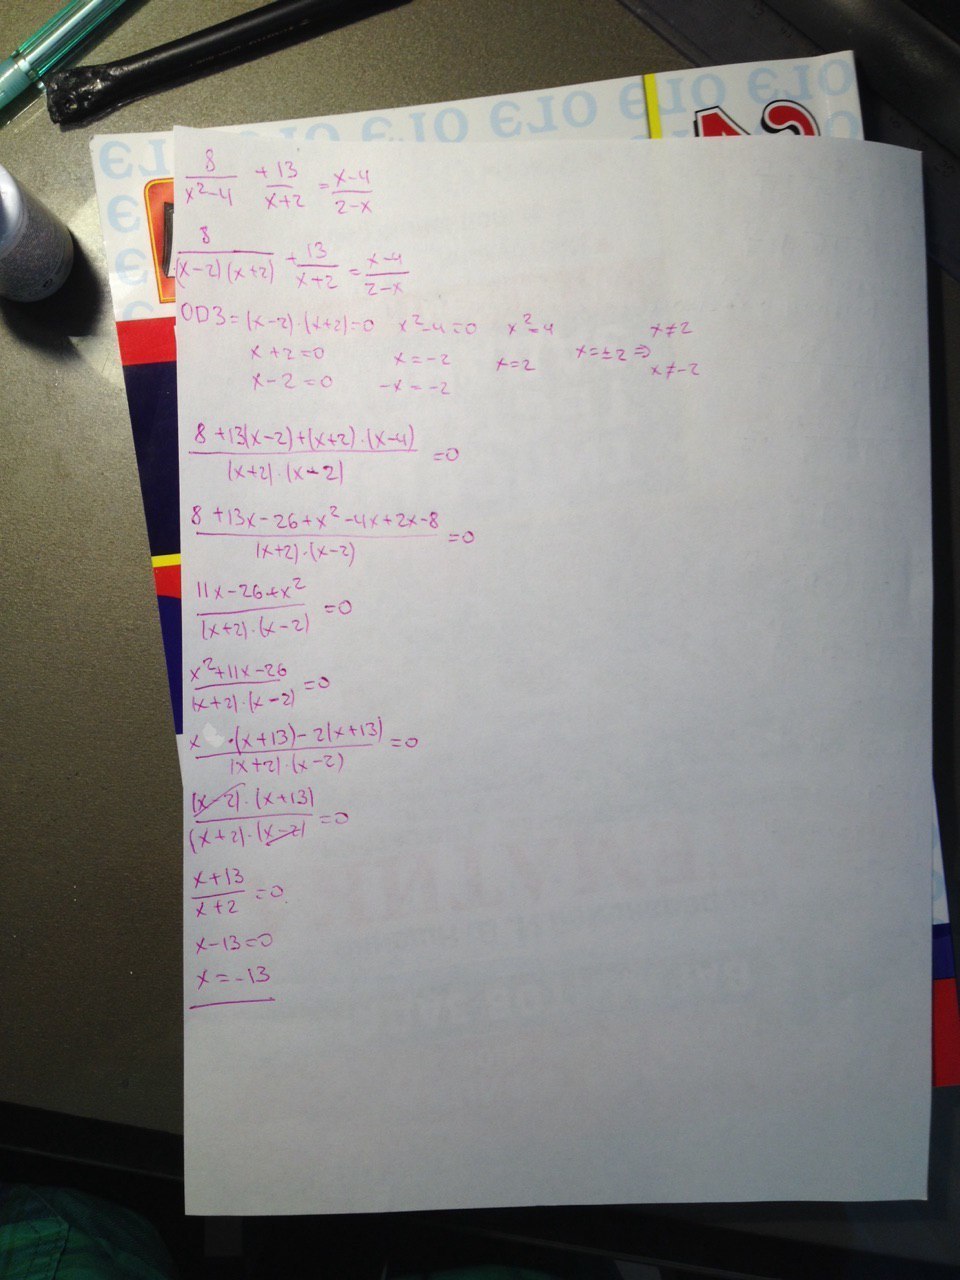 ОТО ОТО ОТО ОТО ОТО
8/(x²-4) + 13/(x+2) = (x-4)/(2-x)
8/((x-2)(x+2)) + 13/(x+2) = (x-4)/(2-x)
ОDЗ = (x-2)·(x+2)=0 x²-4=0 x²=4 x≠2
x+2=0 x=-2 x=2 x=±2 ⇒ x≠-2
x-2=0 -x=-2
(8+13(x-2)+(x+2)·(x-4))/((x+2)·(x-2)) =0
(8+13x-26+x²-4x+2x-8)/((x+2)·(x-2)) =0
(11x-26+x²)/((x+2)·(x-2)) =0
(x²+11x-26)/((x+2)·(x-2)) =0
(x·(x+13)-2(x+13))/((x+2)·(x-2)) =0
((x-2)·(x+13))/((x+2)·(x-2)) =0
(x+13)/(x+2) =0
x-13=0
x=-13